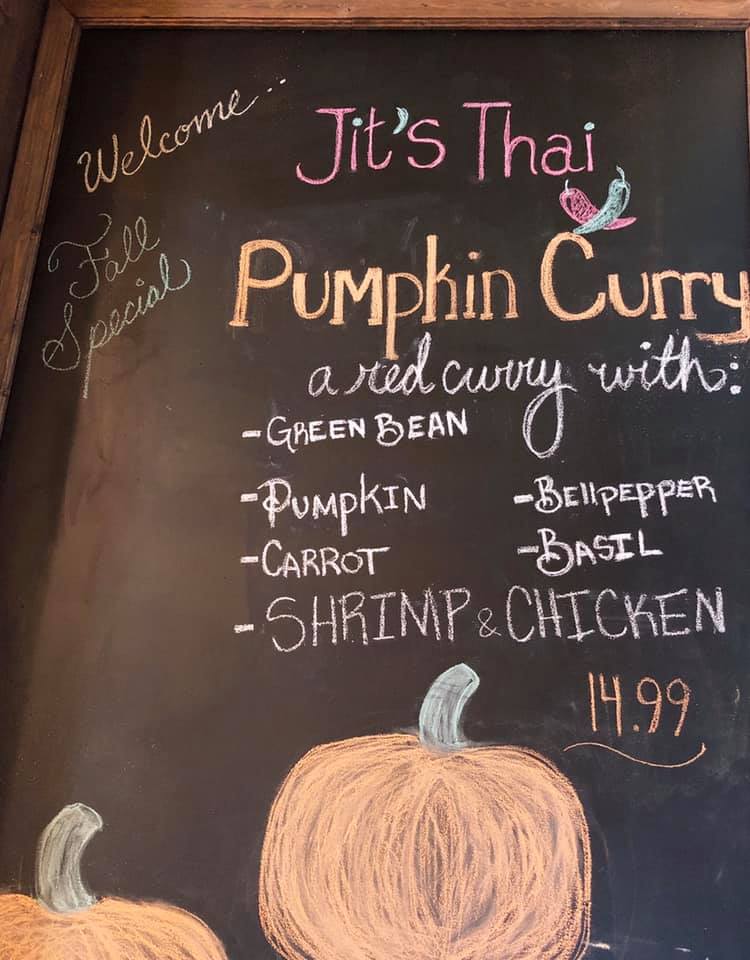 Welcome..
Jit's Thai
Fall
Special
Pumpkin Curry
a red curry with:
-GREEN BEAN
-PUMPKIN -BEllPEPPER
-CARROT -BASIL
-SHRIMP & CHICKEN
14.99